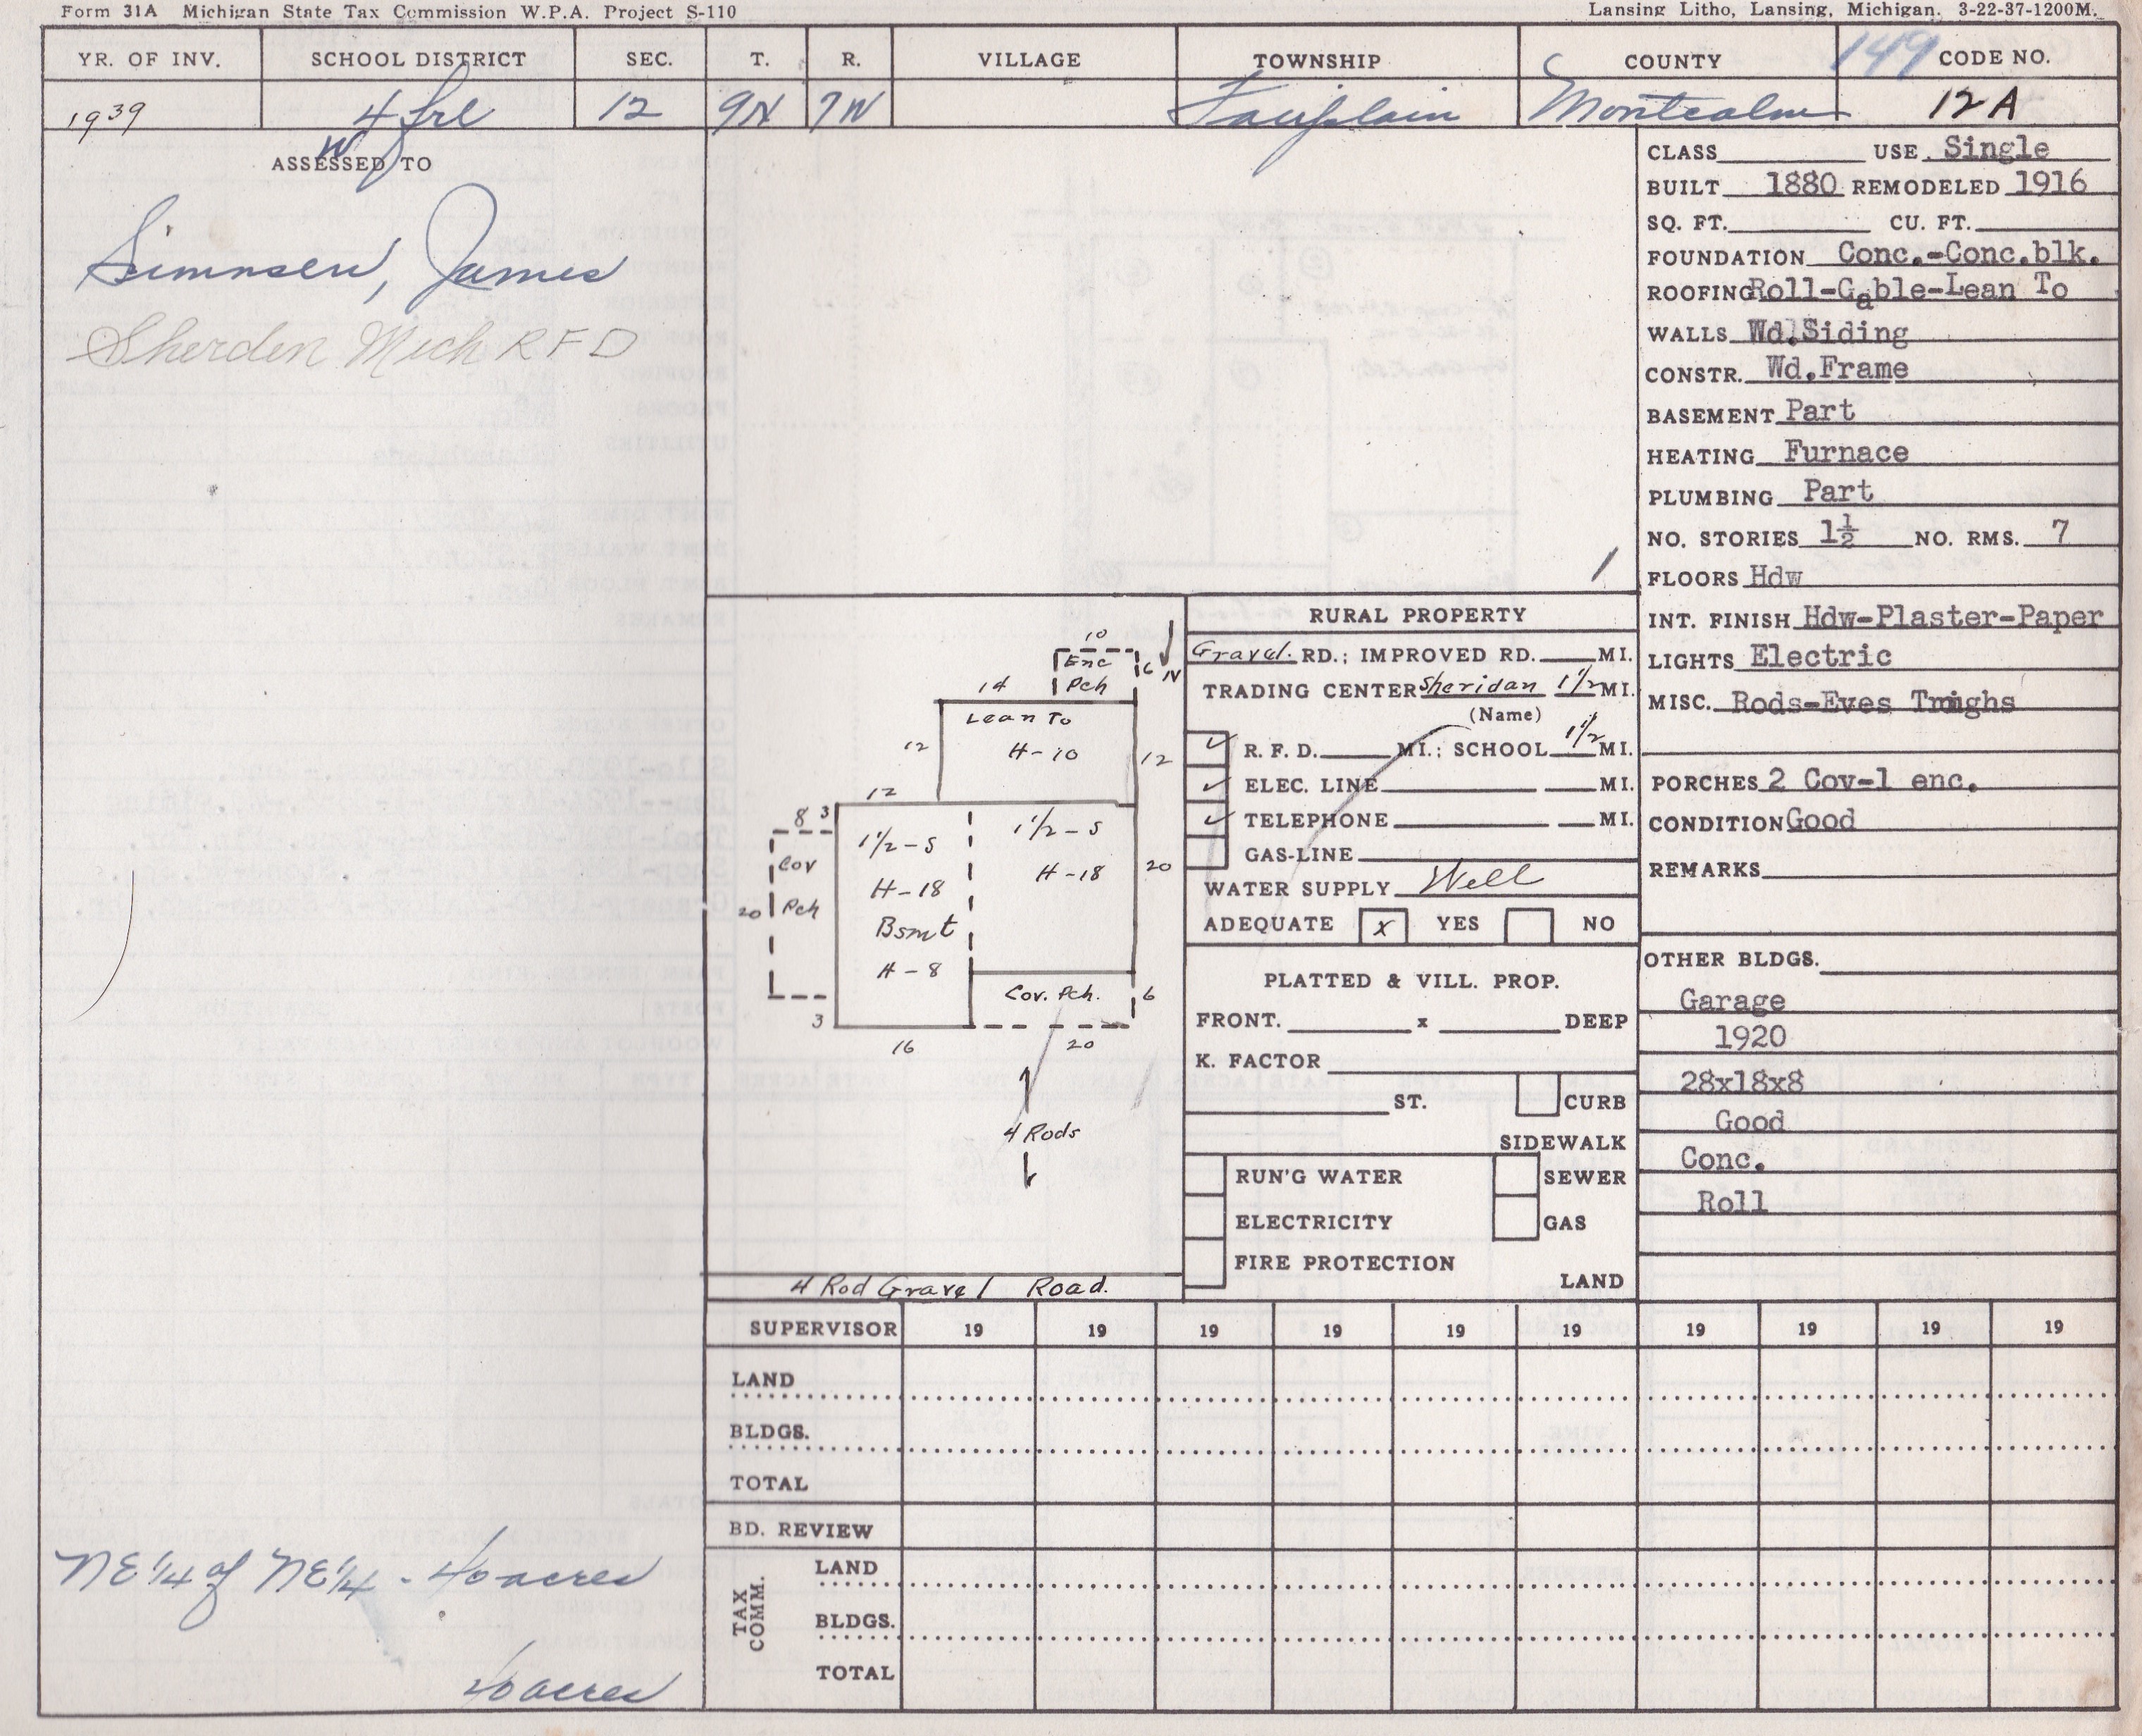 Form 31A Michigan State Tax Commission W.P.A. Project S-110
Lansing Litho, Lansing, Michigan. 3-22-37-1200M.
YR. OF INV. SCHOOL DISTRICT SEC. T. R. VILLAGE TOWNSHIP COUNTY 149 CODE NO.
1939 4 frl 12 9N 7W Fairplain Montcalm 12A
W
ASSESSED TO
Simnsen, James
Sherden Mich RFD
NE 1/4 of NE 1/4 - 40 acres
40 acres
10
Enc
Pch
6
N
14
Lean To
12
H-10
12
12
8 3
1 1/2-S
1 1/2-S
Cov
H-18
H-18
20
20 Pch
Bsmt
H-8
Cov. Pch.
6
3
16
20
4 Rods
4 Rod Gravel Road.
RURAL PROPERTY
Gravel. RD.; IMPROVED RD. MI.
TRADING CENTER Sheridan 1 1/2 MI.
(Name)
✓ R. F. D. MI.; SCHOOL 1 1/2 MI.
✓ ELEC. LINE MI.
✓ TELEPHONE MI.
GAS-LINE
WATER SUPPLY Well
ADEQUATE x YES NO
PLATTED & VILL. PROP.
FRONT. x DEEP
K. FACTOR
ST. CURB
SIDEWALK
RUN'G WATER SEWER
ELECTRICITY GAS
FIRE PROTECTION
LAND
CLASS USE Single
BUILT 1880 REMODELED 1916
SQ. FT. CU. FT.
FOUNDATION Conc.-Conc.blk.
ROOFING Roll-Gable-Lean To
WALLS Wd.Siding
CONSTR. Wd.Frame
BASEMENT Part
HEATING Furnace
PLUMBING Part
NO. STORIES 1½ NO. RMS. 7
FLOORS Hdw
INT. FINISH Hdw-Plaster-Paper
LIGHTS Electric
MISC. Rods-Eves
PORCHES 2 Cov-1 enc.
CONDITION Good
REMARKS
OTHER BLDGS.
Garage
1920
28x18x8
Good
Conc.
Roll
SUPERVISOR 19 19 19 19 19 19 19 19 19 19
LAND
BLDGS.
TOTAL
BD. REVIEW
TAX COMM.
LAND
BLDGS.
TOTAL